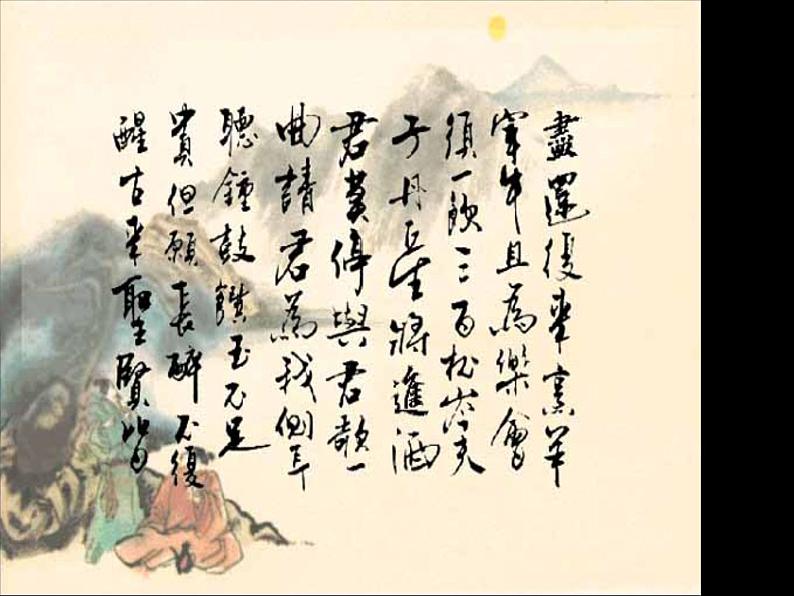 盡還復來烹羊
宰牛且為樂會
須一飲三百杯岑夫
子丹丘生將進酒
君莫停與君歌一
曲請君為我側耳
聽鍾鼓饌玉不足
貴但願長醉不復
醒古來聖賢皆